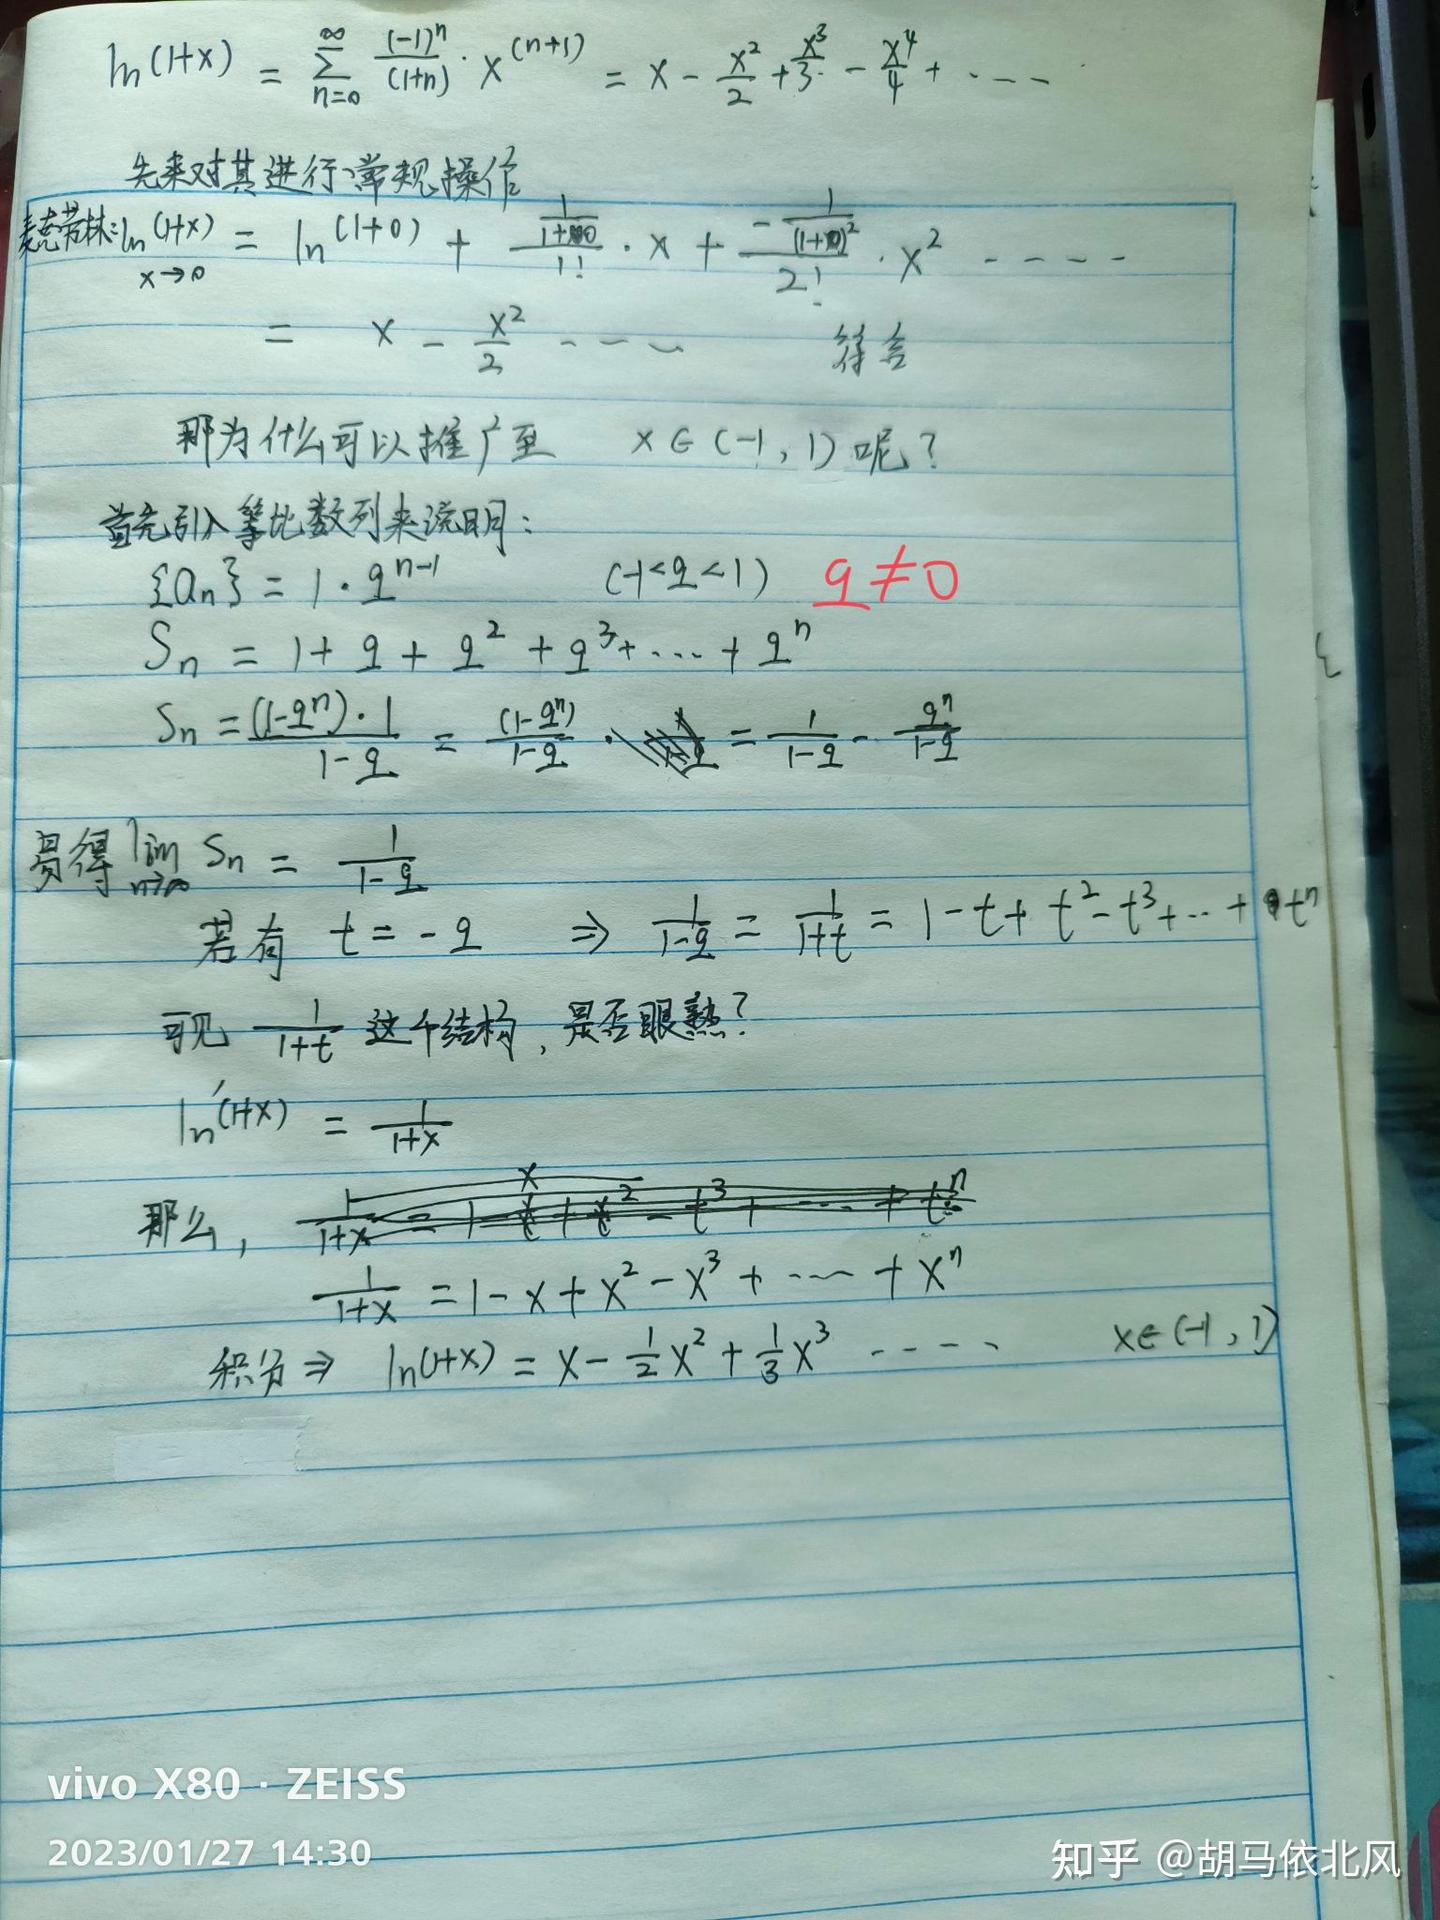 ln(1+x) = ∑_{n=0}^{∞} (-1)^n/(1+n) · x^(n+1) = x - x²/2 + x³/3 - x⁴/4 + ····
先来对其进行常规操作
麦克劳林: ln(1+x) x→0 = ln(1+0) + (1/(1+0))/1! · x + (-1/(1+0)²)/2! · x² ----
= x - x²/2 ---- 符合
那为什么可以推广至 x∈(-1,1)呢?
首先引入等比数列来说明:
{an} = 1·q^{n-1} (-1<q<1) q≠0
Sn = 1+q+q²+q³+···+q^n
Sn = (1-q^n)·1/(1-q) = (1-q^n)/(1-q) · = 1/(1-q) - q^n/(1-q)
易得 lim n→∞ Sn = 1/(1-q)
若有 t=-q ⇒ 1/(1-q) = 1/(1+t) = 1-t+t²-t³+··+t^n
可见 1/(1+t) 这个结构,是否眼熟?
ln'(1+x) = 1/(1+x)
那么,
1/(1+x) = 1-x+x²-x³+····+x^n
积分⇒ ln(1+x) = x - 1/2 x² + 1/3 x³ ---- x∈(-1,1)
vivo X80 · ZEISS
2023/01/27 14:30
知乎 @胡马依北风